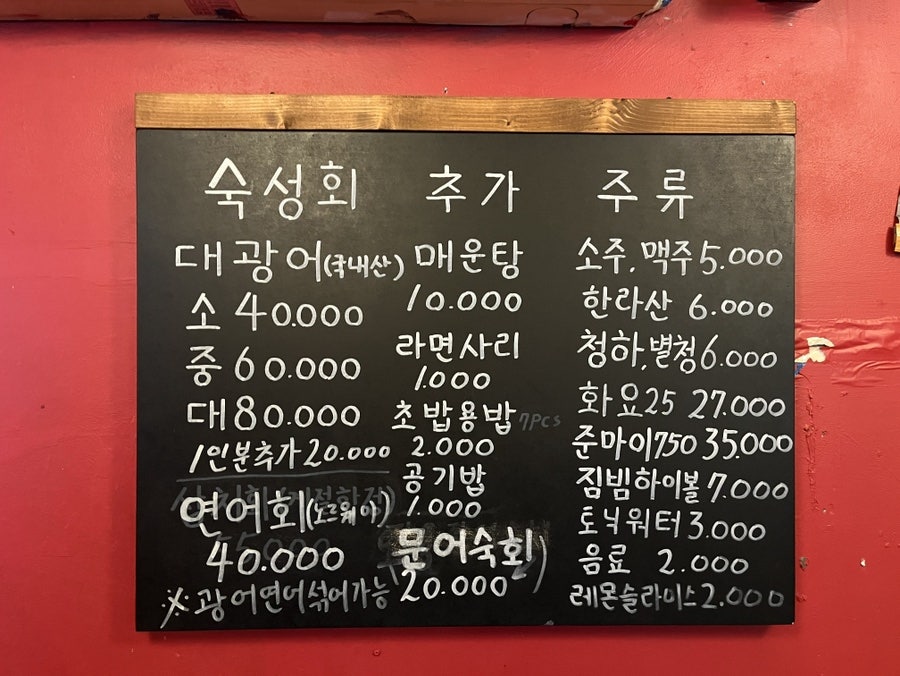 숙성회
대광어(국내산)
소 40.000
중 60.000
대 80.000
1인분추가 20.000
연어회(노르웨이)
40.000
※ 광어연어섞어가능
추가
매운탕
10.000
라면사리
1.000
초밥용밥 7pcs
2.000
공기밥
1.000
문어숙회
20.000
주류
소주, 맥주 5.000
한라산 6.000
청하, 별청 6.000
화요25 27.000
준마이750 35.000
짐빔하이볼 7.000
토닉워터 3.000
음료 2.000
레몬슬라이스 2.000